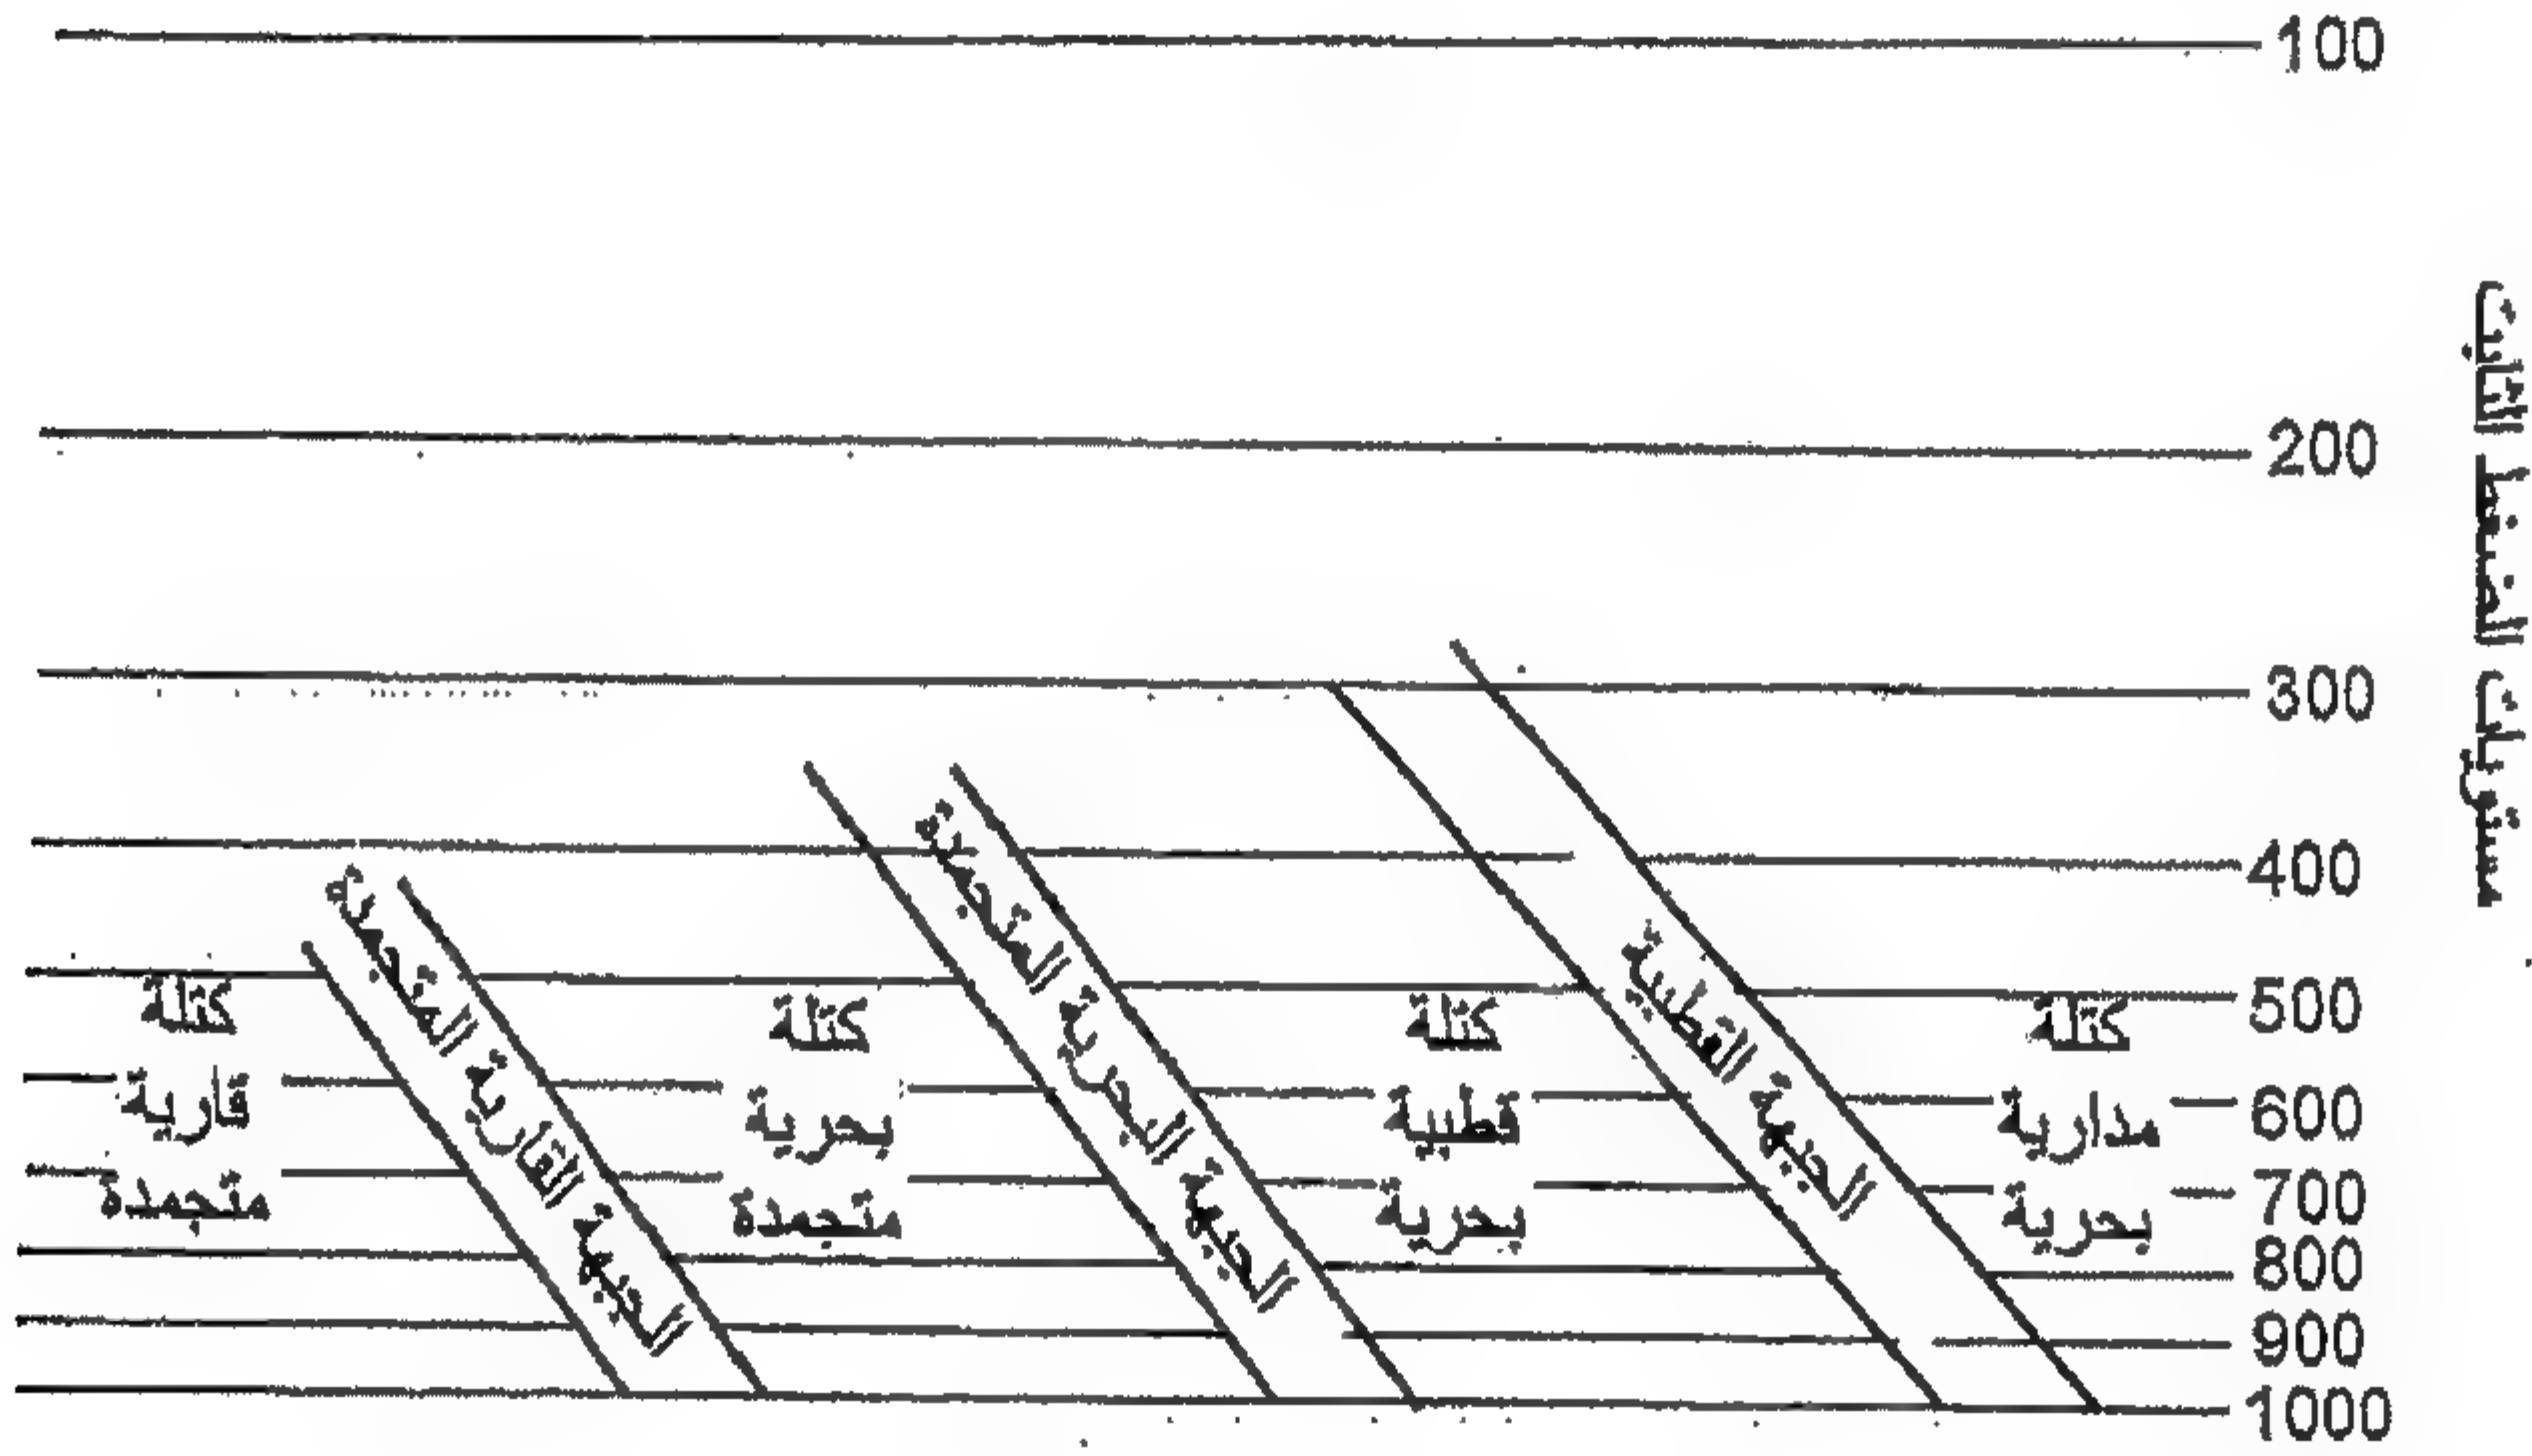 100
200
300
400
500
600
700
800
900
1000
مستويات الضغط الثابت
كتلة
مدارية
بحرية
الجبهة القطبية
كتلة
قطبية
بحرية
الجبهة البحرية المتجمدة
كتلة
بحرية
متجمدة
الجبهة القارية المتجمدة
كتلة
قارية
متجمدة